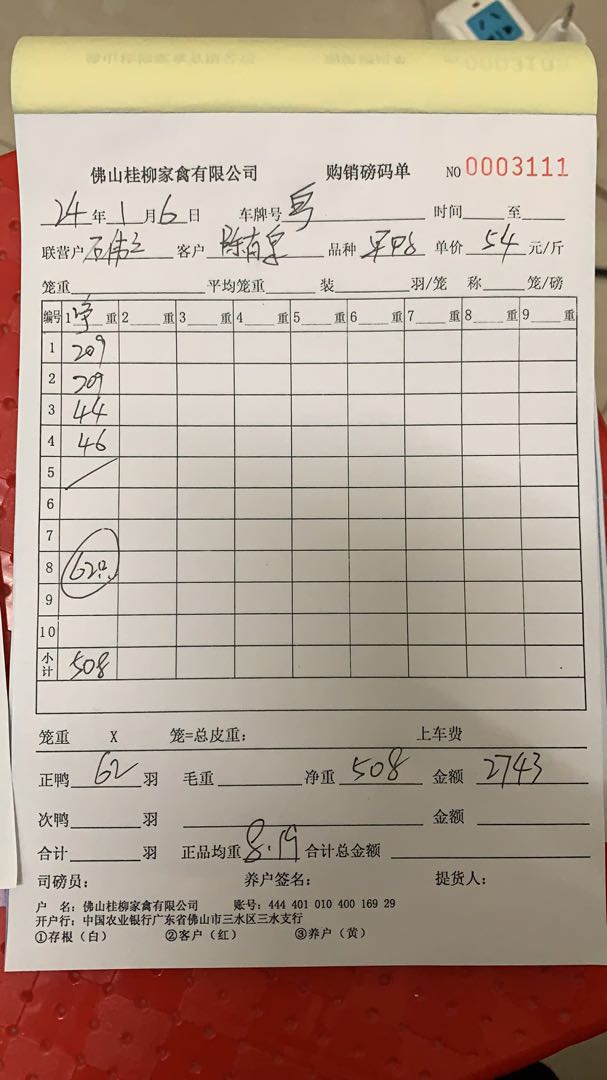 佛山桂柳家禽有限公司 购销磅码单 NO 0003111
24年1月6日 车牌号 时间 至
联营户 客户 品种 单价 54 元/斤
笼重 平均笼重 装 羽/笼 称 笼/磅
编号 1 重 2 重 3 重 4 重 5 重 6 重 7 重 8 重 9 重
1 209
2 209
3 44
4 46
5
6
7
8 62只
9
10
小计 508
笼重 X 笼=总皮重: 上车费
正鸭 62 羽 毛重 净重 508 金额 2743
次鸭 羽 金额
合计 羽 正品均重 8.19 合计总金额
司磅员: 养户签名: 提货人:
户 名: 佛山桂柳家禽有限公司 账号: 444 401 010 400 169 29
开户行: 中国农业银行广东省佛山市三水区三水支行
①存根(白) ②客户(红) ③养户(黄)